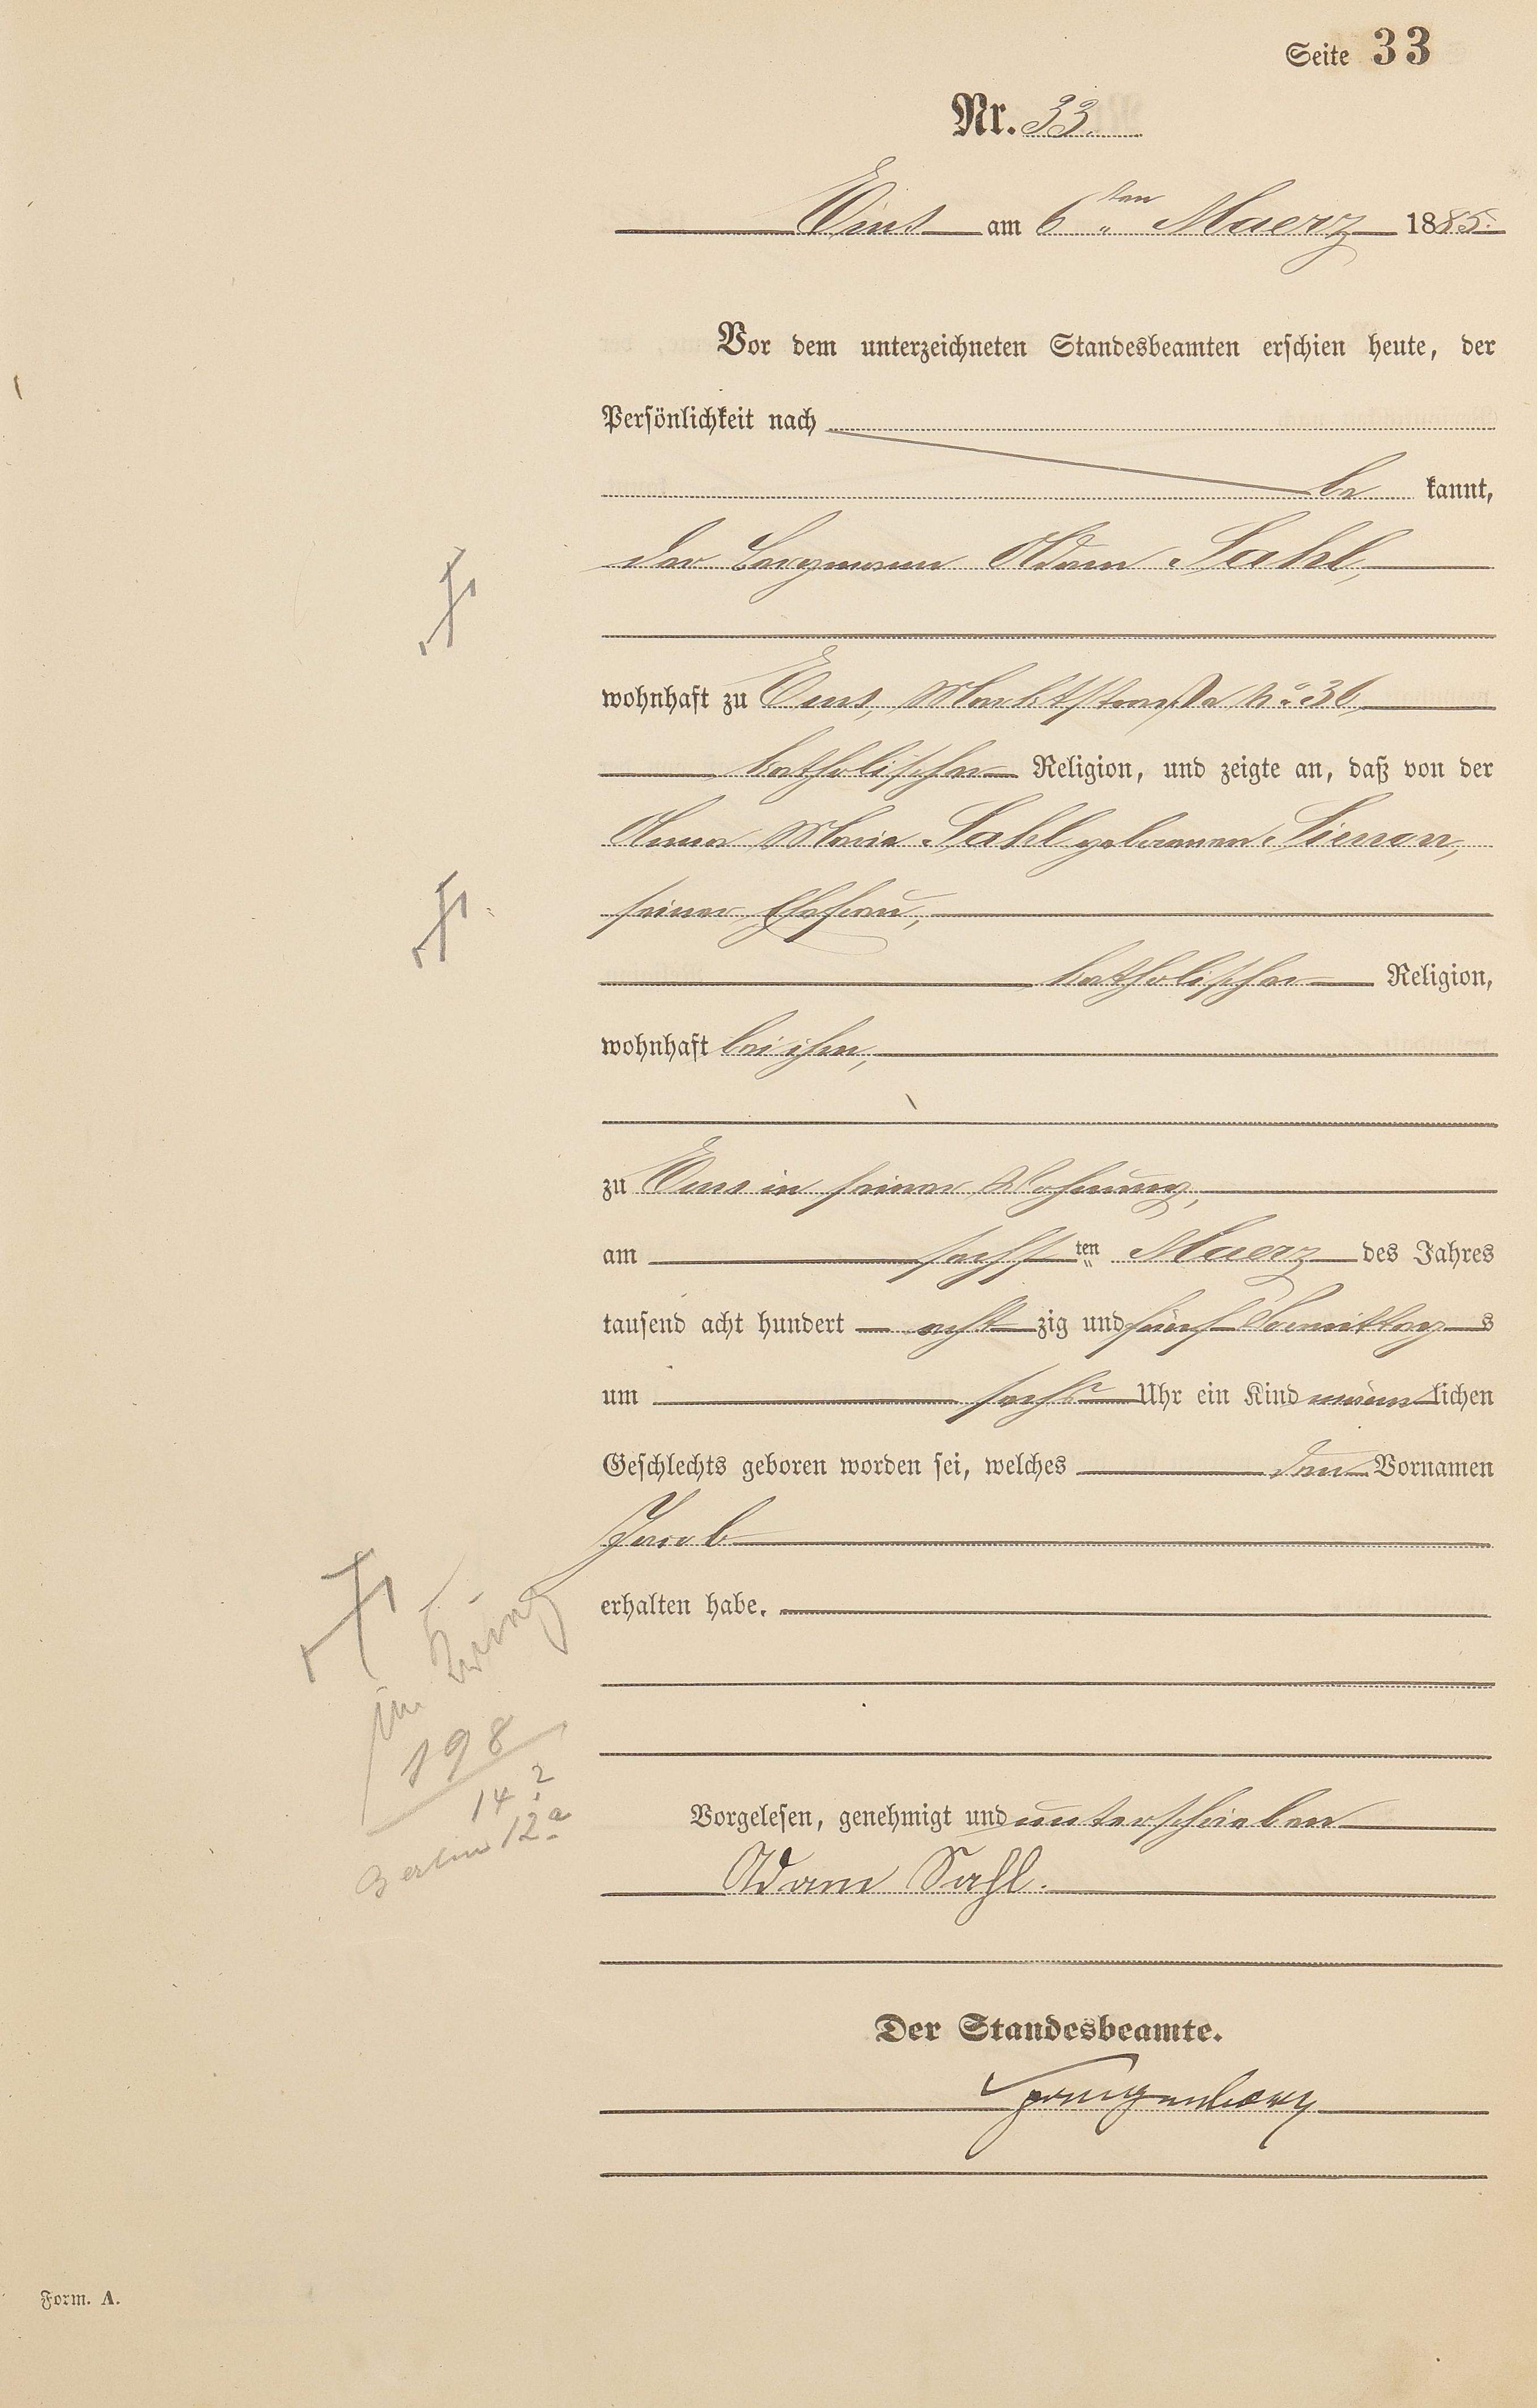 Seite 33
Nr. 33.
Ems am 6ten Maerz 1885.
Vor dem unterzeichneten Standesbeamten erschien heute, der
Persönlichkeit nach
be kannt,
der Bergmann Adam Sahl,
wohnhaft zu Ems, Marktstraße No 36,
katholischer Religion, und zeigte an, daß von der
Anna Maria Sahl geborenen Simon,
seiner Ehefrau,
katholischer Religion,
wohnhaft bei ihm,
zu Ems in seiner Wohnung,
am sechsten Maerz des Jahres
tausend acht hundert acht zig und fünf Vormittags
um sechs Uhr ein Kind männlichen
Geschlechts geboren worden sei, welches den Vornamen
Jacob
erhalten habe.
im
198
14 ?
Berlin 12a
Vorgelesen, genehmigt und unterschrieben
Adam Sahl.
Der Standesbeamte.
Form. A.